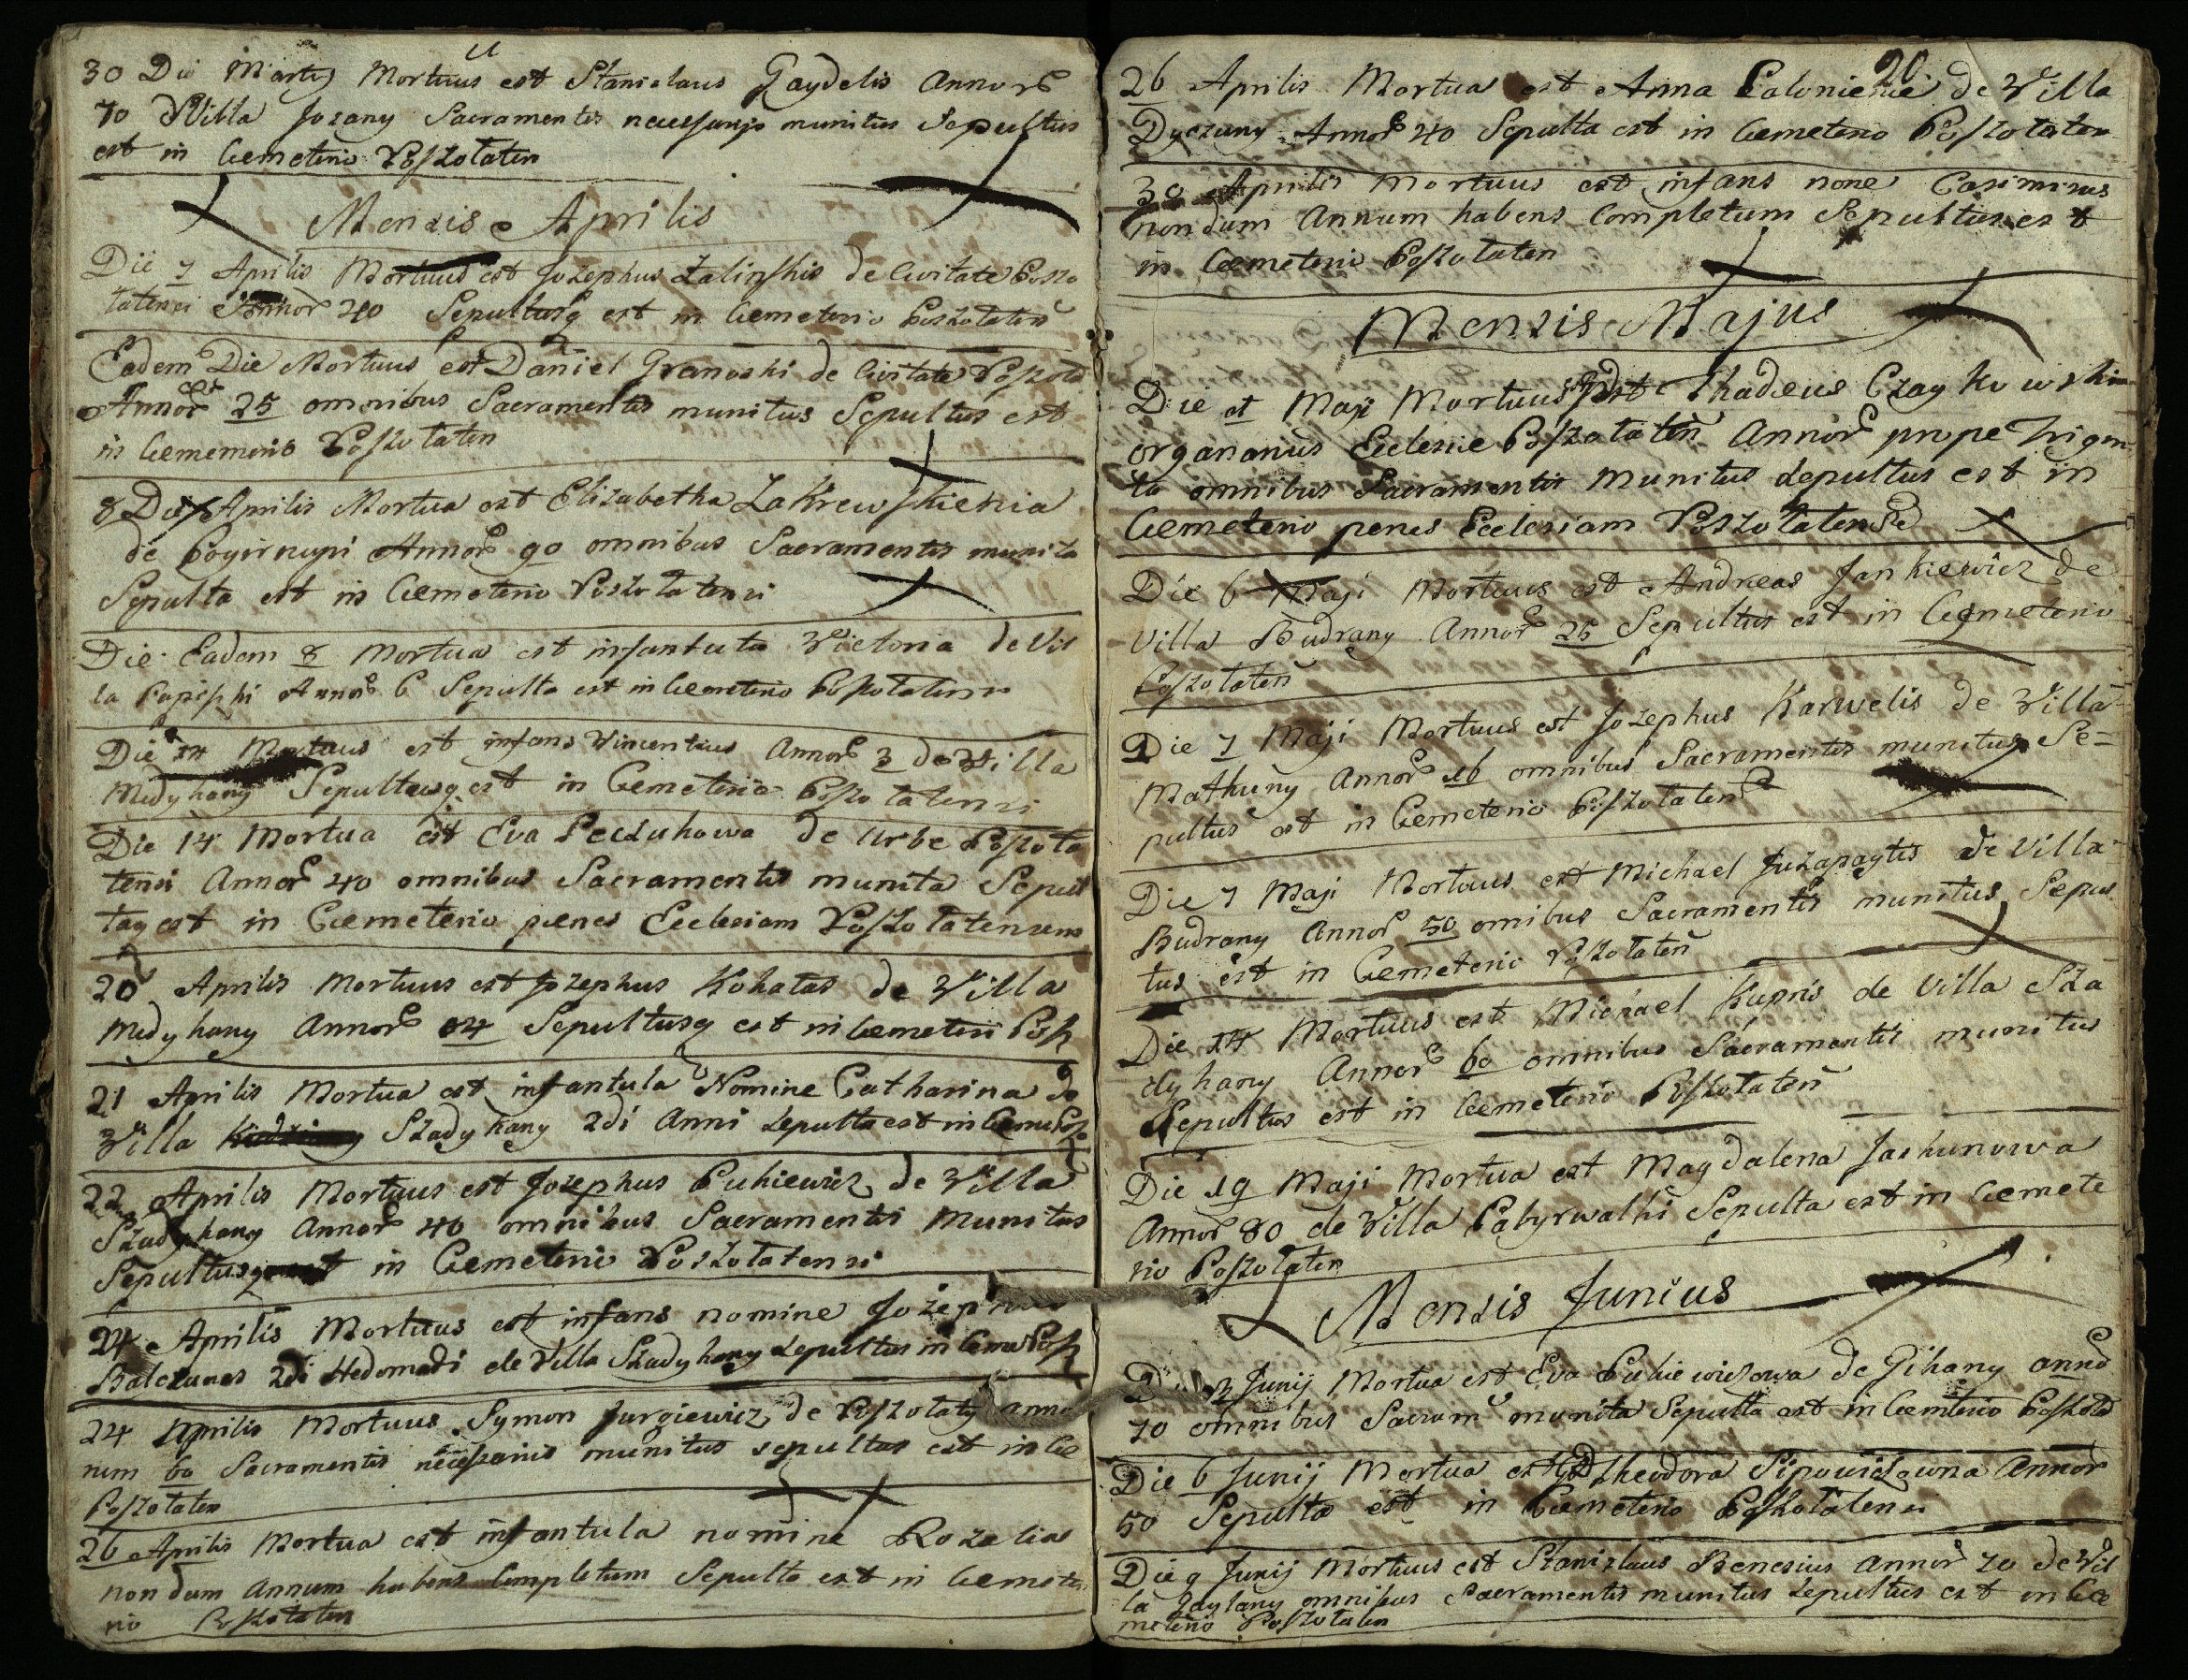 30 Die Martij Mortuus est Stanislaus Gaydelis Annor
70 Villa Jozany Sacramentis necessarijs munitus Sepultus
est in Cemeterio Poszolaten
Mensis Aprilis
Die 7 Aprilis Mortuus est Jozephus Zalinskis de Civitate Poszo
latensi Annor 40 Sepultusq est in Cemeterio Poszolaten
Eadem Die Mortuus est Daniel Granoski de Civitate Poszol
Annor 25 omnibus Sacramentis munitus Sepultus est
in Cememerio Poszolaten
8 Die Aprilis Mortua est Elizabetha Zakrewskienia
de Pogirnupi Annor 90 omnibus Sacramentis munita
Sepulta est in Cemeterio Poszolatensi
Die Eadem 8 Mortua est infantula Victoria de Vil
la Annor 6 Sepulta est in Cemeterio Poszolatensi
Die 14 Mortuus est infans Vincentius Annor 3 de Villa
Medykany Sepultusq est in Cemeterio Poszolatensi
Die 14 Mortua est Eva Peczukowa de Urbe Poszola
tensi Annor 40 omnibus Sacramentis munita Sepul
taq est in Cemeterio penes Ecclesiam Poszolatensem
20 Aprilis Mortuus est Jozephus Kohatas de Villa
Medykany Annor 04 Sepultusq est in Cemeteri Posz
21 Aprilis Mortua est infantula Nomine Catharina de
Villa Szadykany 2di Anni Sepulta est in Ceme Posz
22 Aprilis Mortuus est Jozephus Pukiewicz de Villa
Szadykany Annor 40 omnibus Sacramentis Munitus
Sepultusq est in Cemeterio Poszolatensi
24 Aprilis Mortuus est infans nomine Jozephus
Balczunas 2di Hedomadi de Villa Szadykany Sepultus in Ceme Posz
24 Aprilis Mortuus Symon Jurgiewicz de Poszolaty anno
rum 60 Sacramentis necessariis munitus sepultus est in Ce
Poszolaten
26 Aprilis Mortua est infantula nomine Rozalia
nondum Annum habens Completum Sepulta est in Cemete
rio Poszolaten
20
26 Aprilis Mortua est Anna Palonienie de Villa
Dyczuny Annor 40 Sepulta est in Cemeterio Poszolaten
30 Aprilis Mortuus est infans none Casimirus
nondum Annum habens Completum Sepultus est
in Cemeterio Poszolaten
Mensis Majus
Die et Maji Mortuus est Thadeus Czaykowski
organarius Eclesie Poszolaten Annor prope Trigin
ta omnibus Sacramentis Munitus Sepultus est in
Cemeterio penes Ecclesiam Poszolatense
Die 6 Maji Mortuus est Andreas Jankiewicz de
Villa Budrany Annor 25 Sepultus est in Cemeterio
Poszolaten
Die 7 Maji Mortuus est Jozephus Karwelis de Villa
Mathuny Annor 16 omnibus Sacramentis munitus Se=
pultus est in Cemeterio Poszolaten
Die 7 Maji Mortuus est Michael Juzapaytis de Villa
Budrany Annor 50 omnibus Sacramentis munitus Sepul
tus est in Cemeterio Poszolaten
Die 14 Mortuus est Michael Kupris de Villa Sza
dykany Annor 60 omnibus Sacramentis munitus
Sepultus est in Cemeterio Poszolaten
Die 19 Maji Mortua est Magdalena Jaskunowa
Annor 80 de Villa Pabyrwalki Sepulta est in Cemete
rio Poszolaten
Mensis Junius
Junij Mortua est Eva Pukiewiczowa de Gikany anno
70 omnibus Sacram munita Sepulta est in Cemterio Poszola
Die 6 Junij Mortua est Theodora Sipowiczowna Annor
50 Sepulta est in Cemeterio Poszolatensi
Die 9 Junij Mortuus est Stanislaus Benesius Annor 70 de Vil
la Gaylany omnibus Sacramentis munitus Sepultus est in Ce
meterio Poszolaten